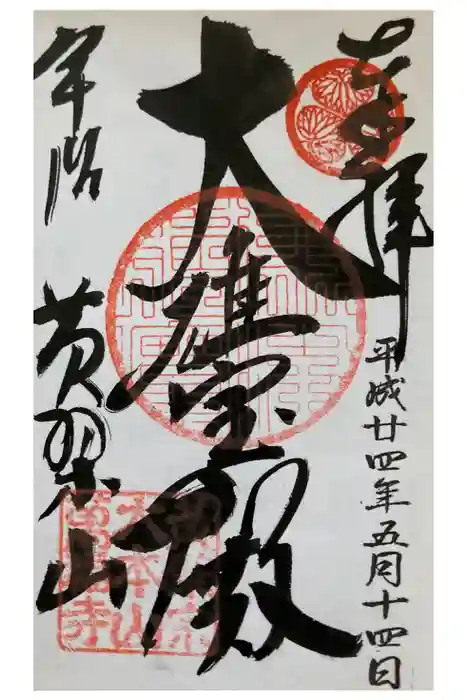 奉拝
平成廿四年五月十四日
大雄宝殿
宇治
黄檗山